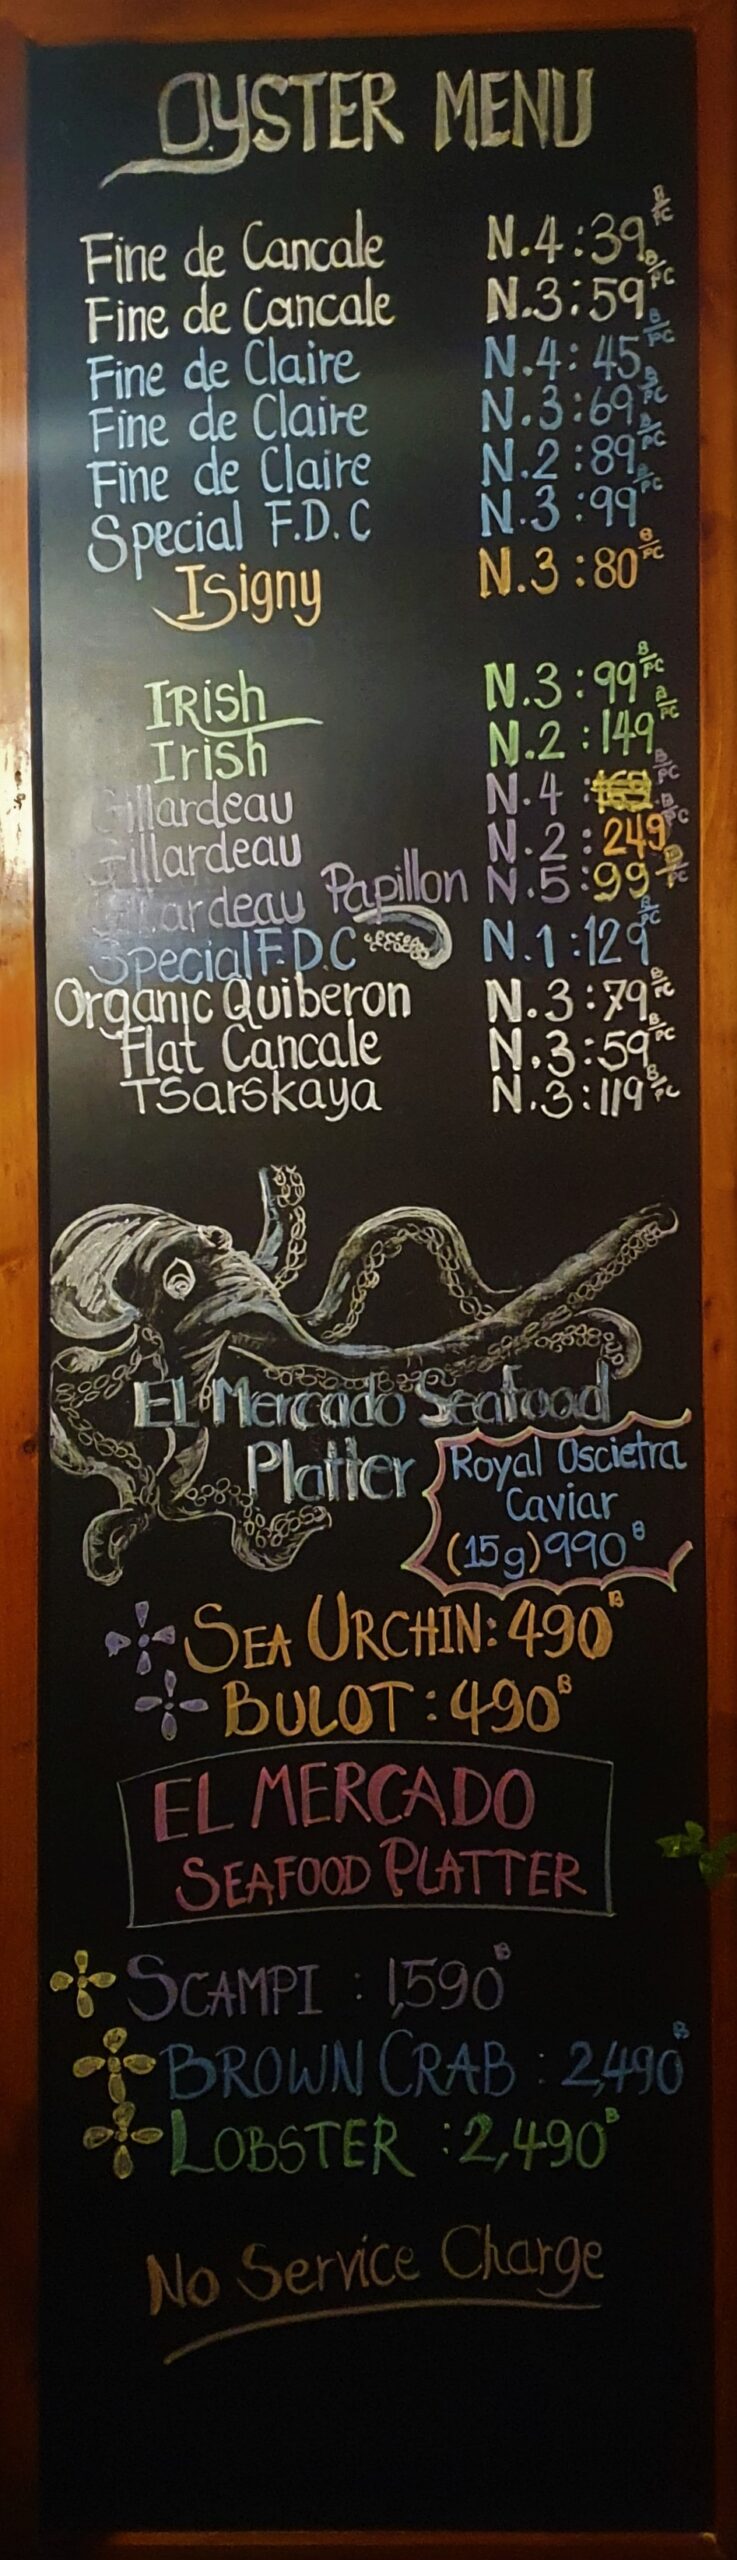 OYSTER MENU
Fine de Cancale N.4 : 39 B/PC
Fine de Cancale N.3 : 59 B/PC
Fine de Claire N.4 : 45 B/PC
Fine de Claire N.3 : 69 B/PC
Fine de Claire N.2 : 89 B/PC
Special F.D.C N.3 : 99 B/PC
Isigny N.3 : 80 B/PC
IRish N.3 : 99 B/PC
Irish N.2 : 149 B/PC
Gillardeau N.4 : B/PC
Gillardeau N.2 : 249 B/PC
Gillardeau Papillon N.5 : 99 B/PC
Special F.D.C N.1 : 129 B/PC
Organic Quiberon N.3 : 79 B/PC
Flat Cancale N.3 : 59 B/PC
Tsarskaya N.3 : 119 B/PC
EL Mercado Seafood
Platter
Royal Oscietra
Caviar
(15g) 990 B
SEA URCHIN : 490 B
BULOT : 490 B
EL MERCADO
SEAFOOD PLATTER
SCAMPI : 1,590 B
BROWN CRAB : 2,490 B
LOBSTER : 2,490 B
No Service Charge